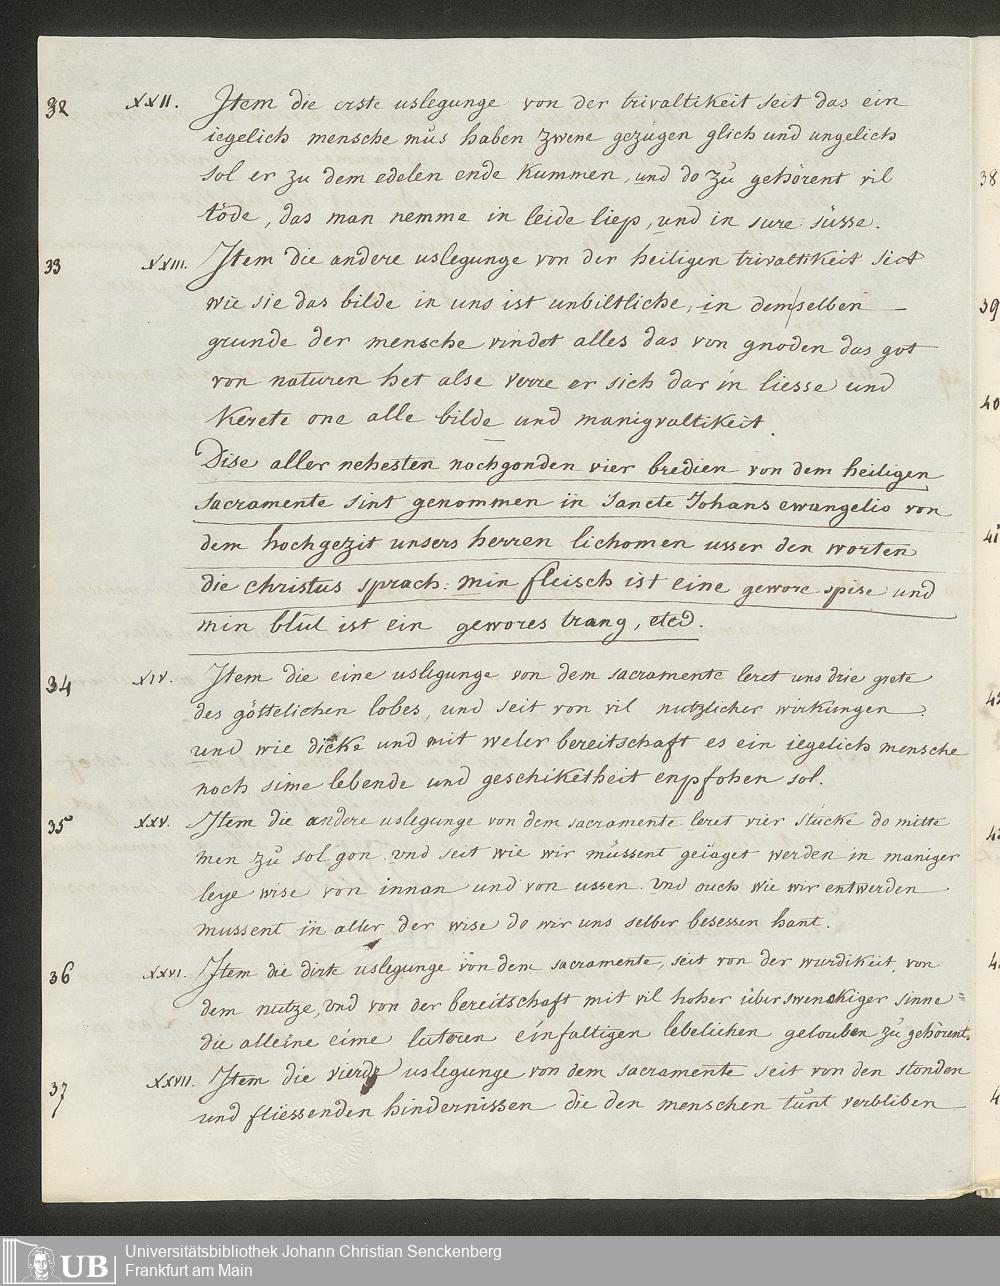 32 XXII. Item die erste uslegunge von der trivaltikeit seit das ein
iegelich mensche mu̍s haben zwene gezu̍gen glich und ungelich
sol er zu dem edelen ende kummen, und do zu̍ gehörent vil
töde, das man nemme in leide liep, und in sure süsse.
33 XXIII. Item die andere uslegunge von der heiligen trivaltikeit seit
wie sie das bilde in uns ist unbiltliche, in dem/selben
grunde der mensche vindet alles das von gnoden das got
von naturen het alse verre er sich dar in liesse und
kerete one alle bilde und manigvaltikeit.
Dise aller nehesten nochgonden vier bredien von dem heiligen
sacramente sint genommen in Sancte Johans ewangelio von
dem hochgezit unsers herren lichomen usser den worten
die christus sprach: min fleisch ist eine gewore spise und
min blu̍t ist ein gewores trang, etc.
34 XIV. Item die eine uslegunge von dem sacramente leret uns drie grete
des göttelichen lobes, und seit von vil nutzlicher wirkungen.
und wie dicke und mit weler bereitschaft es ein iegelich mensche
noch sime lebende und geschiketheit enpfohen sol.
35 XXV. Item die andere uslegunge von dem sacramente leret vier stücke do mitte
men zu̍ sol gon. und seit wie wir müssent geiaget werden in maniger
leye wise von innan und von ussen. und ouch wie wir entwerden
mussent in aller der wise do wir uns selber besessen hant.
36 XXVI. Item die dirte uslegunge von dem sacramente, seit von der wurdikeit, von
dem nutze, und von der bereitschaft mit vil hoher überswenckiger sinne=
die alleine eime luteren einfaltigen lebelichen gelouben zu̍ gehörent.
37 XXVII. Item die vierde uslegunge von dem sacramente seit von den stonden
und fliessenden hindernissen die den menschen tu̍nt verbliben
38
39
40
41
UB Universitätsbibliothek Johann Christian Senckenberg
Frankfurt am Main